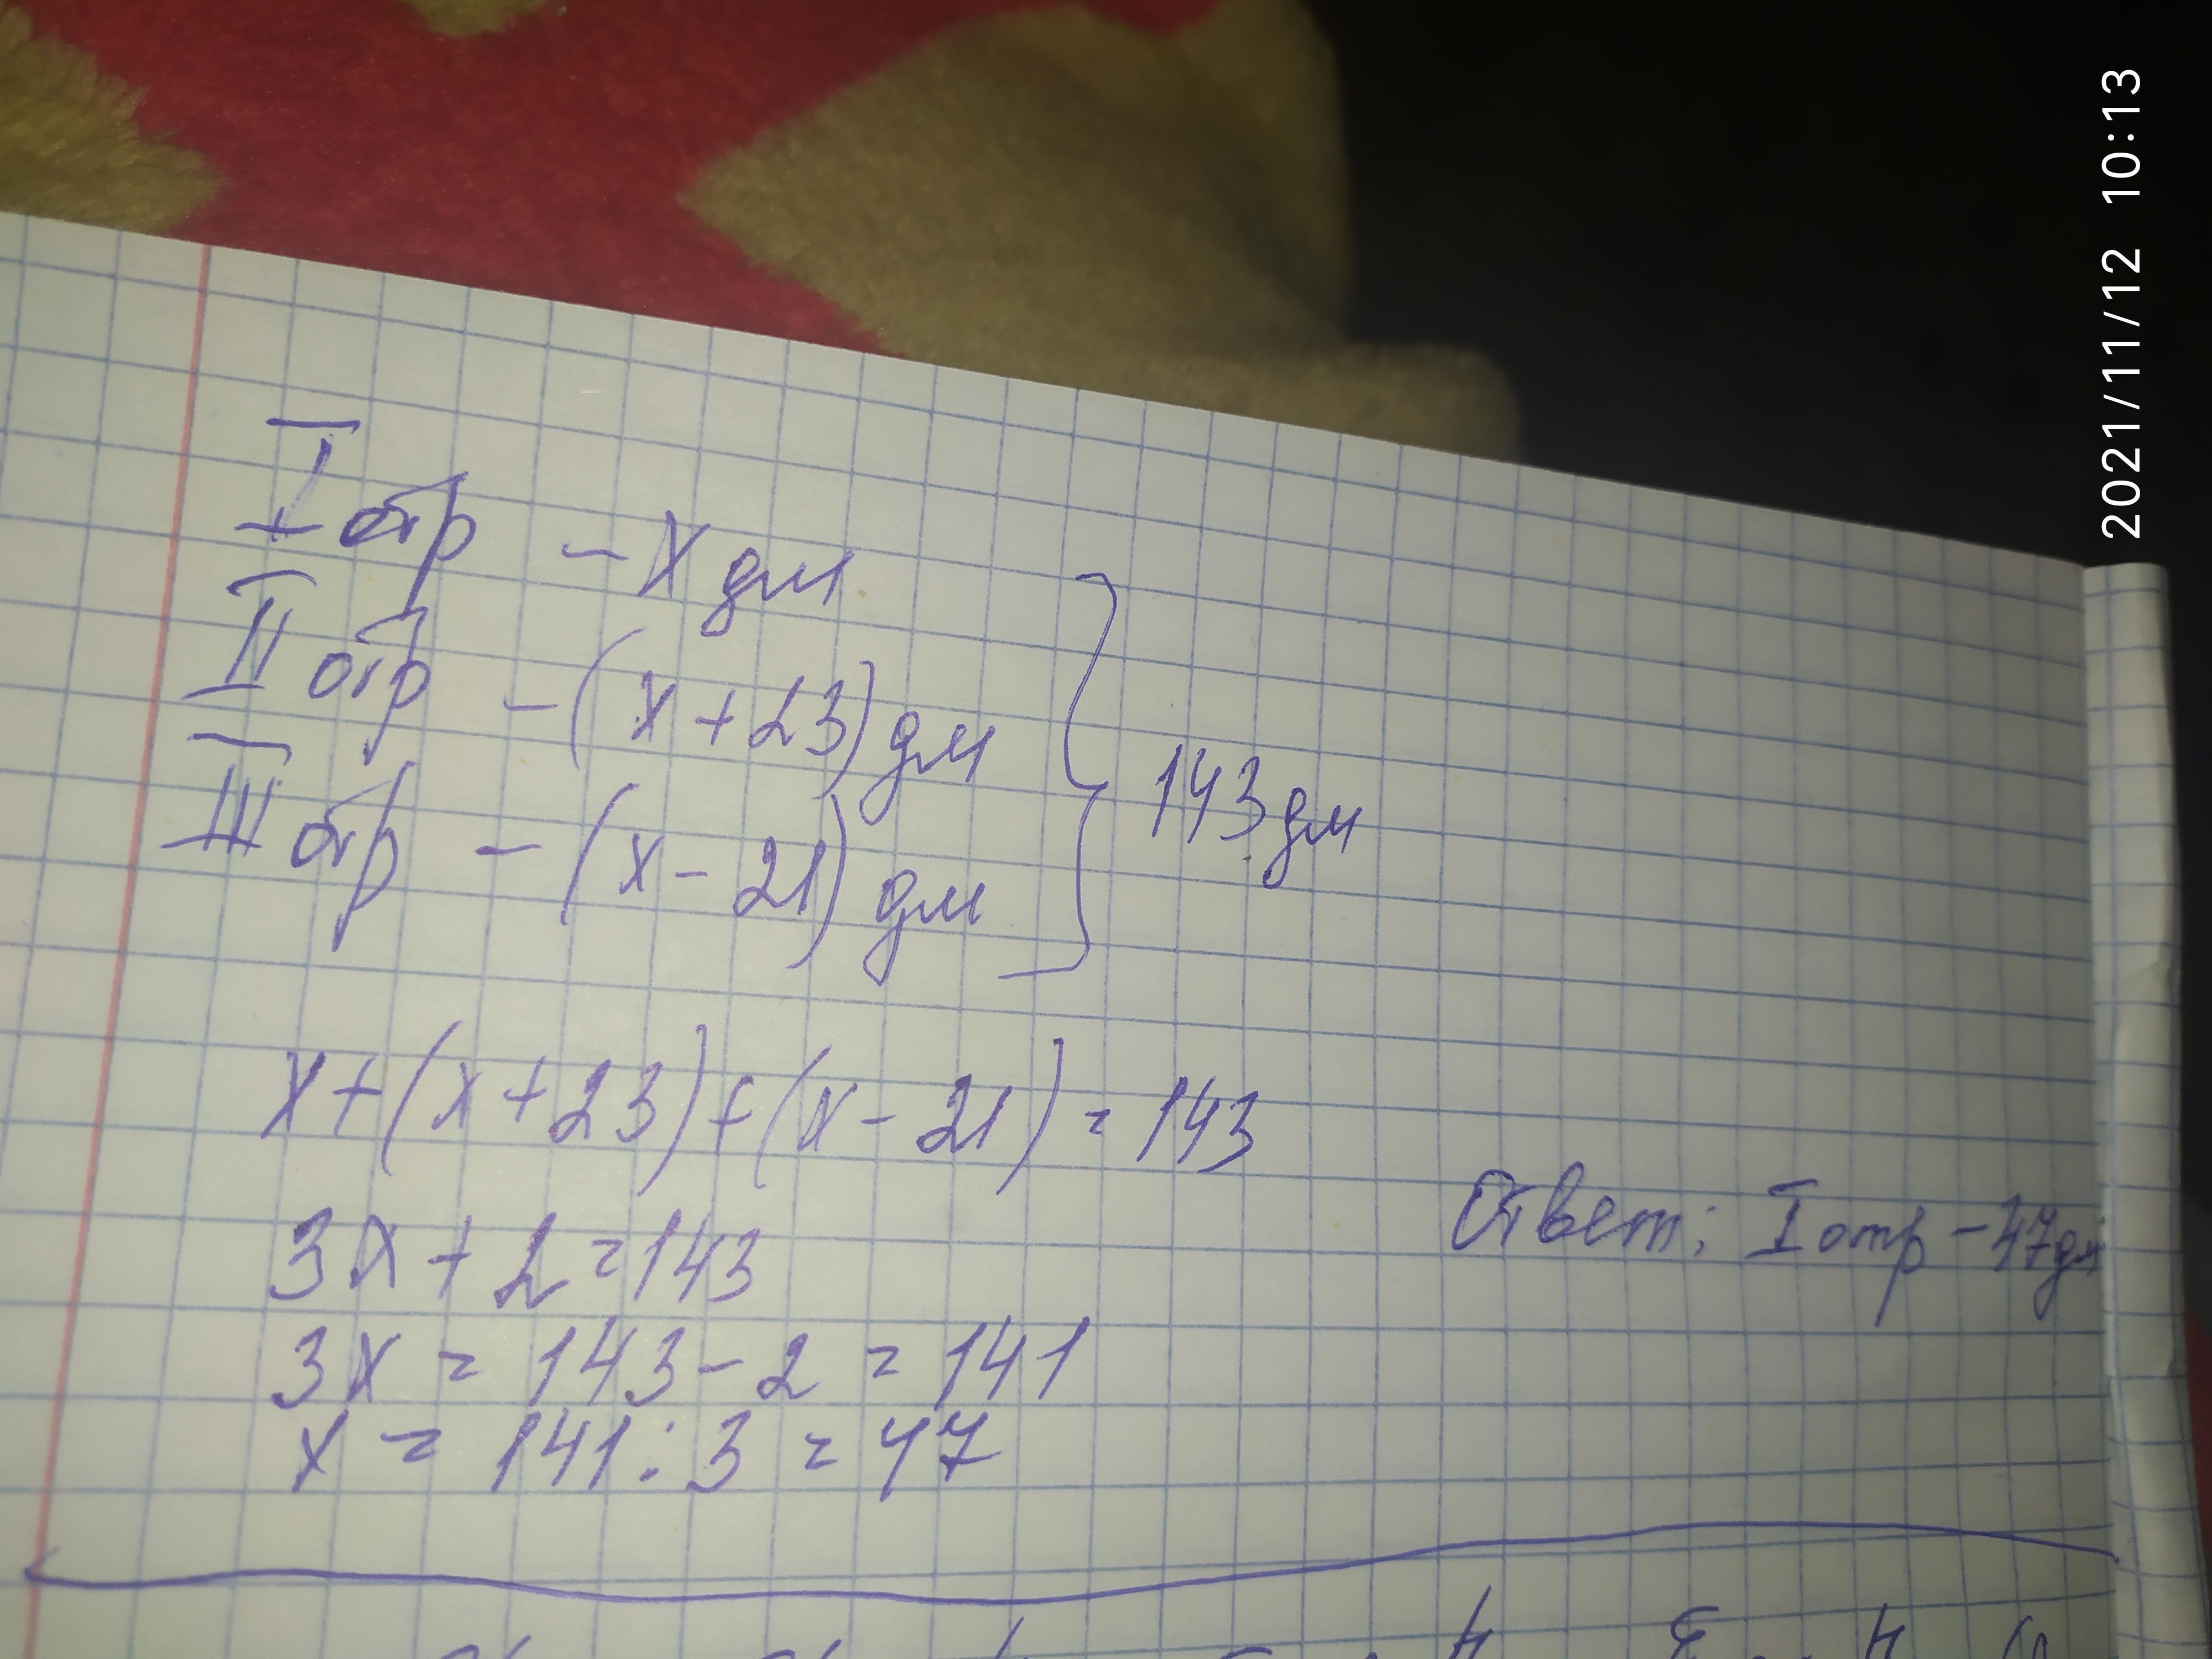 I отр - х дм
II отр - (х + 23) дм
III отр - (х - 21) дм
143 дм
х + (х + 23) + (х - 21) = 143
3х + 2 = 143
3х = 143 - 2 = 141
х = 141 : 3 = 47
Ответ: I отр - 47 дм
2021/11/12 10:13